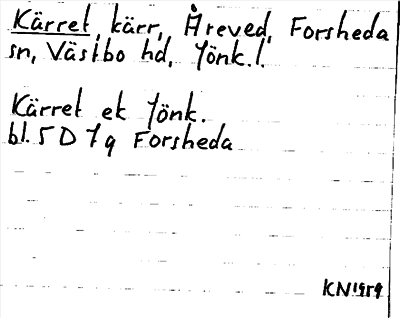 Kärret, kärr, Åreved, Forsheda
sn, Västbo hd, Jönk.l.
Kärret ek Jönk.
bl. 5 D 7 g Forsheda
KN 1959